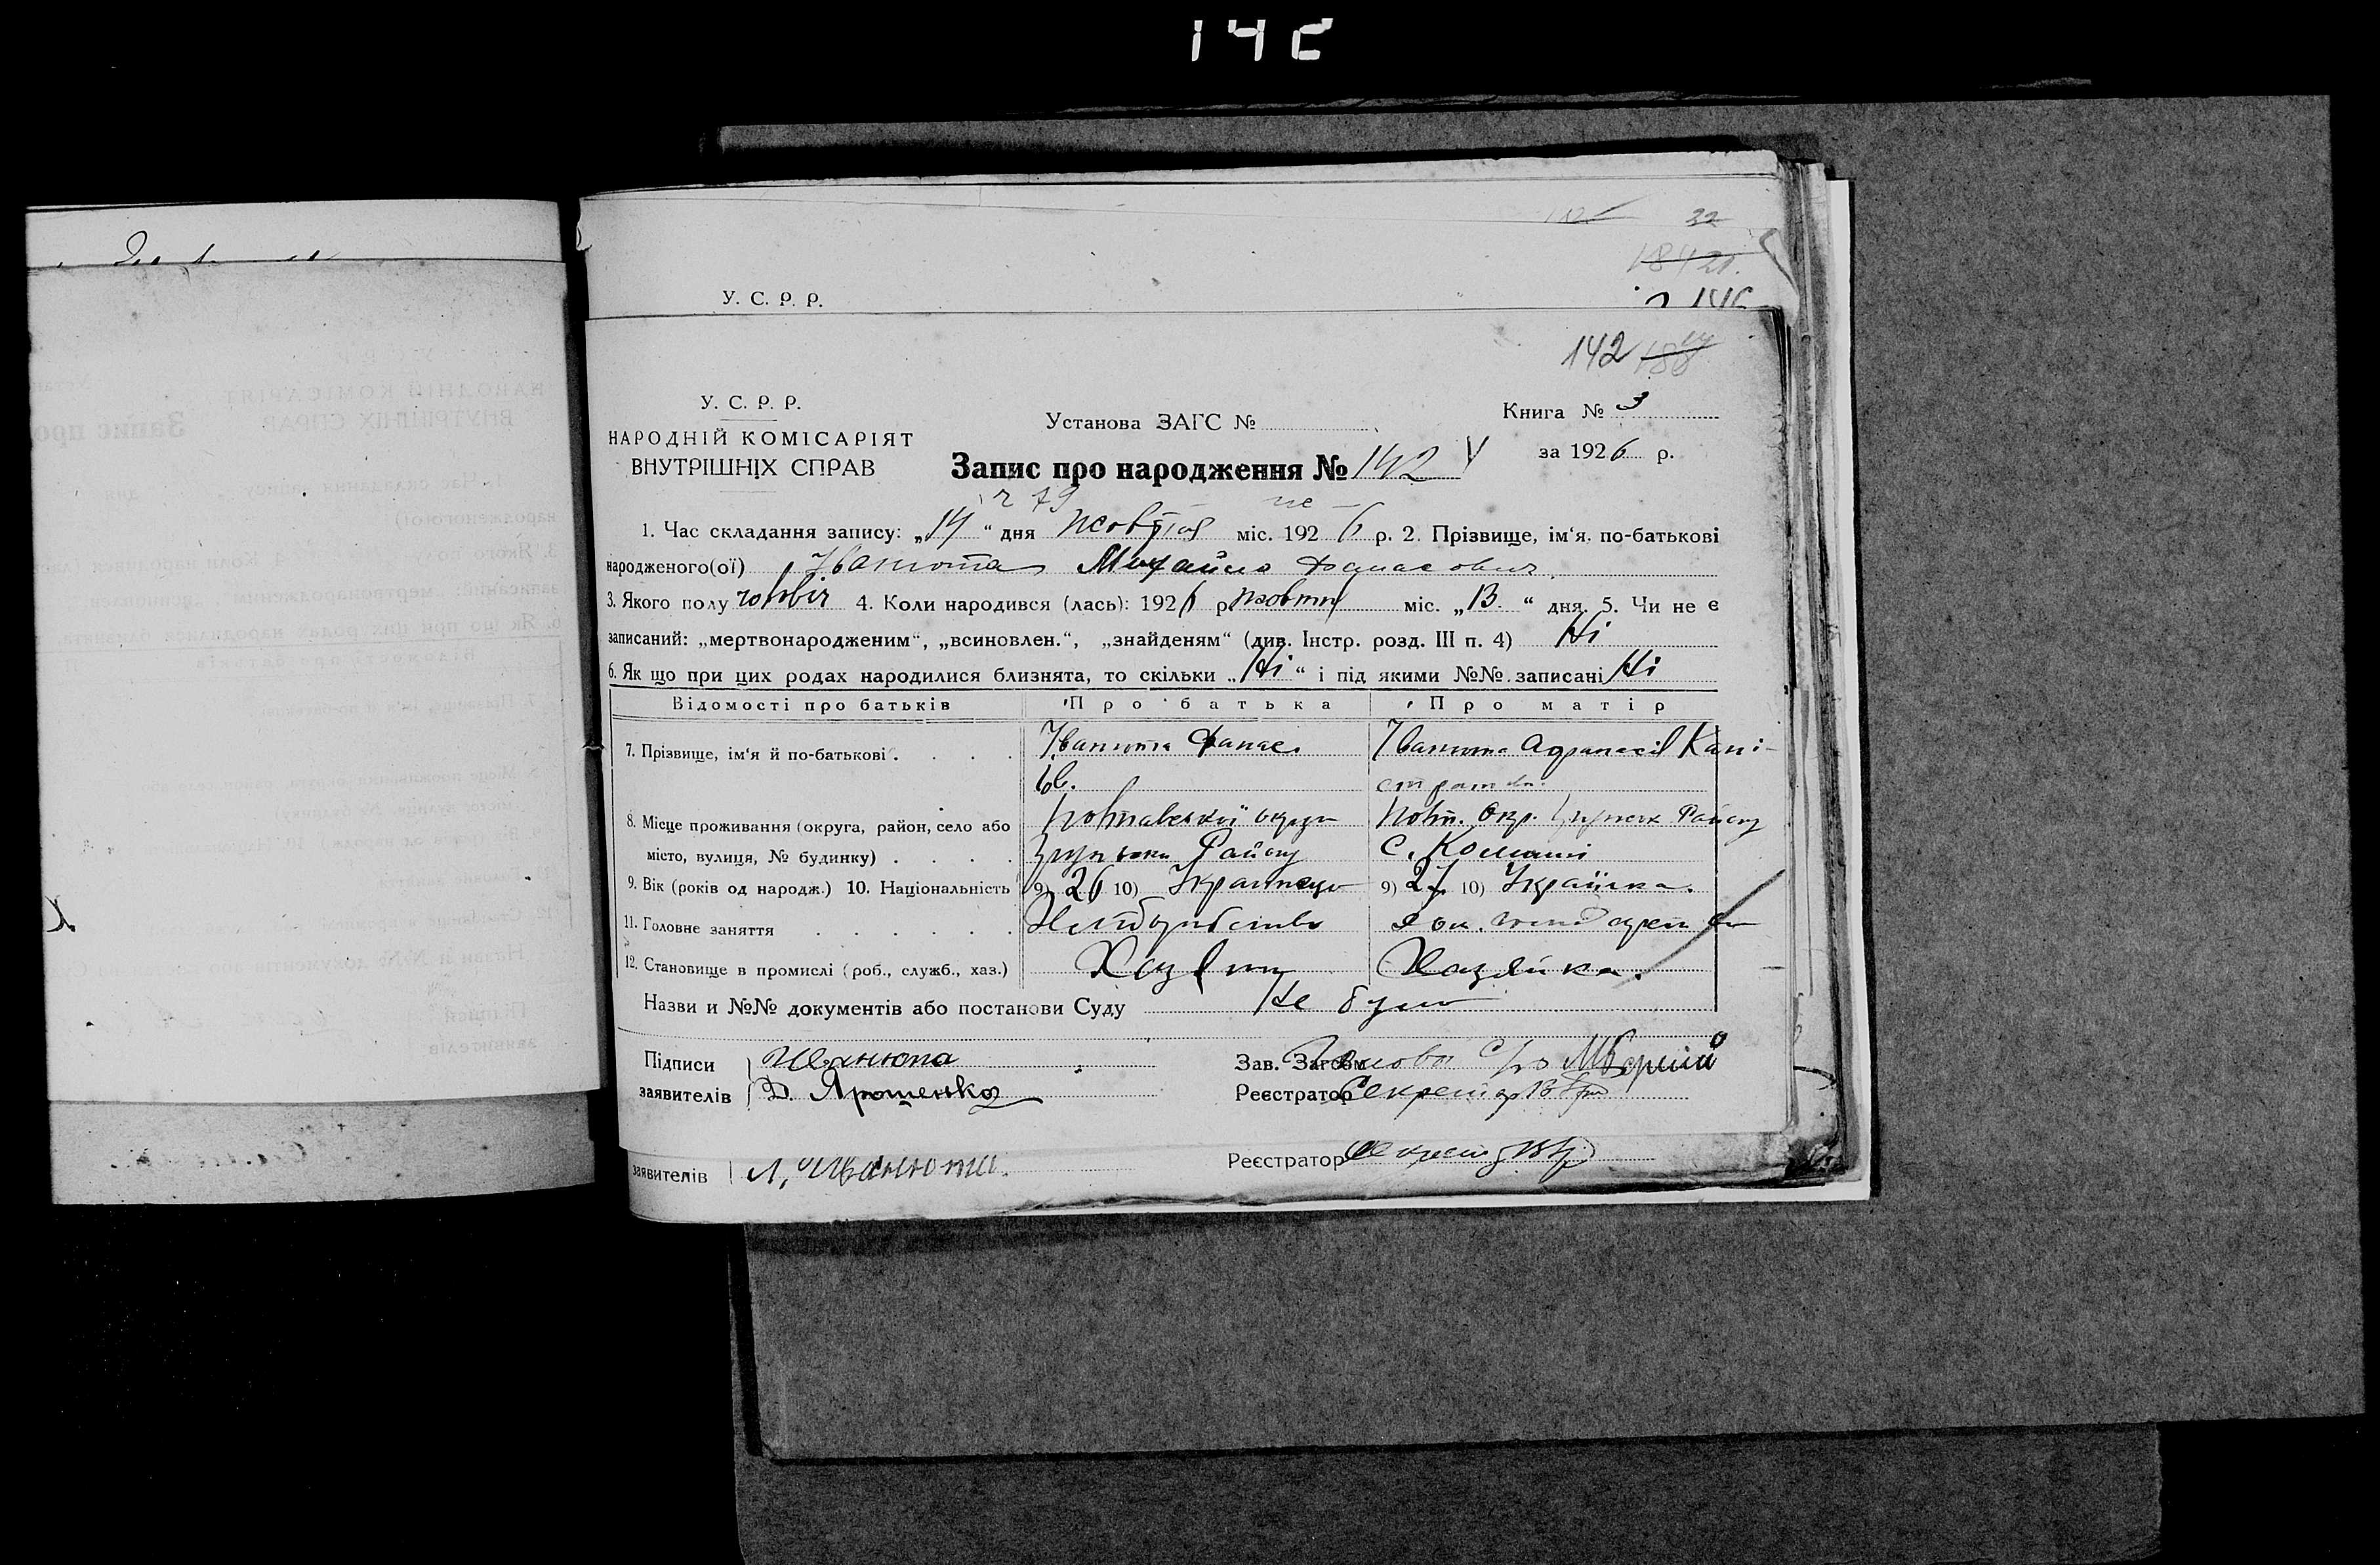 142
32
У. С. Р. Р.
142
У. С. Р. Р.
НАРОДНІЙ КОМІСАРІЯТ
ВНУТРІШНІХ СПРАВ
Установа ЗАГС №
Книга № 3
за 1926 р.
Запис про народження № 142
1. Час складання запису: „14“ дня жовтня міс. 1926 р. 2. Прізвище, ім‘я, по-батькові
народженого(ої) Іванюта Михайло Панасович
3. Якого полу чоловіч 4. Коли народився (лась): 1926 р жовтня міс. „13.“ дня. 5. Чи не є
записаний: „мертвонародженим“, „всиновлен.“, „знайденям“ (див. Інстр. розд. III п. 4) Ні
6. Як що при цих родах народилися близнята, то скільки „Ні“ і під якими №№ записані Ні
Відомості про батьків Про батька Про матір
7. Прізвище, ім‘я й по-батькові Іванюта Панас Ів. Іванюта Калістратовн.
8. Місце проживання (округа, район, село або Полтавської округи Полт. Окр. Району
місто, вулиця, № будинку) Району С. Комиші
9. Вік (років од народж.) 10. Національність 9) 26 10) Українець 9) 27 10) Українка.
11. Головне заняття Хліборобство
12. Становище в промислі (роб., служб., хаз.) Хазяїн Хазяйка.
Назви и №№ документів або постанови Суду Не було
Підписи Іванюта
заявителів Д. Ярошенко
Зав. Загсом Голова С/р
Реєстратор Секретар
заявителів Л. Иванюта.
Реєстратор Секрет